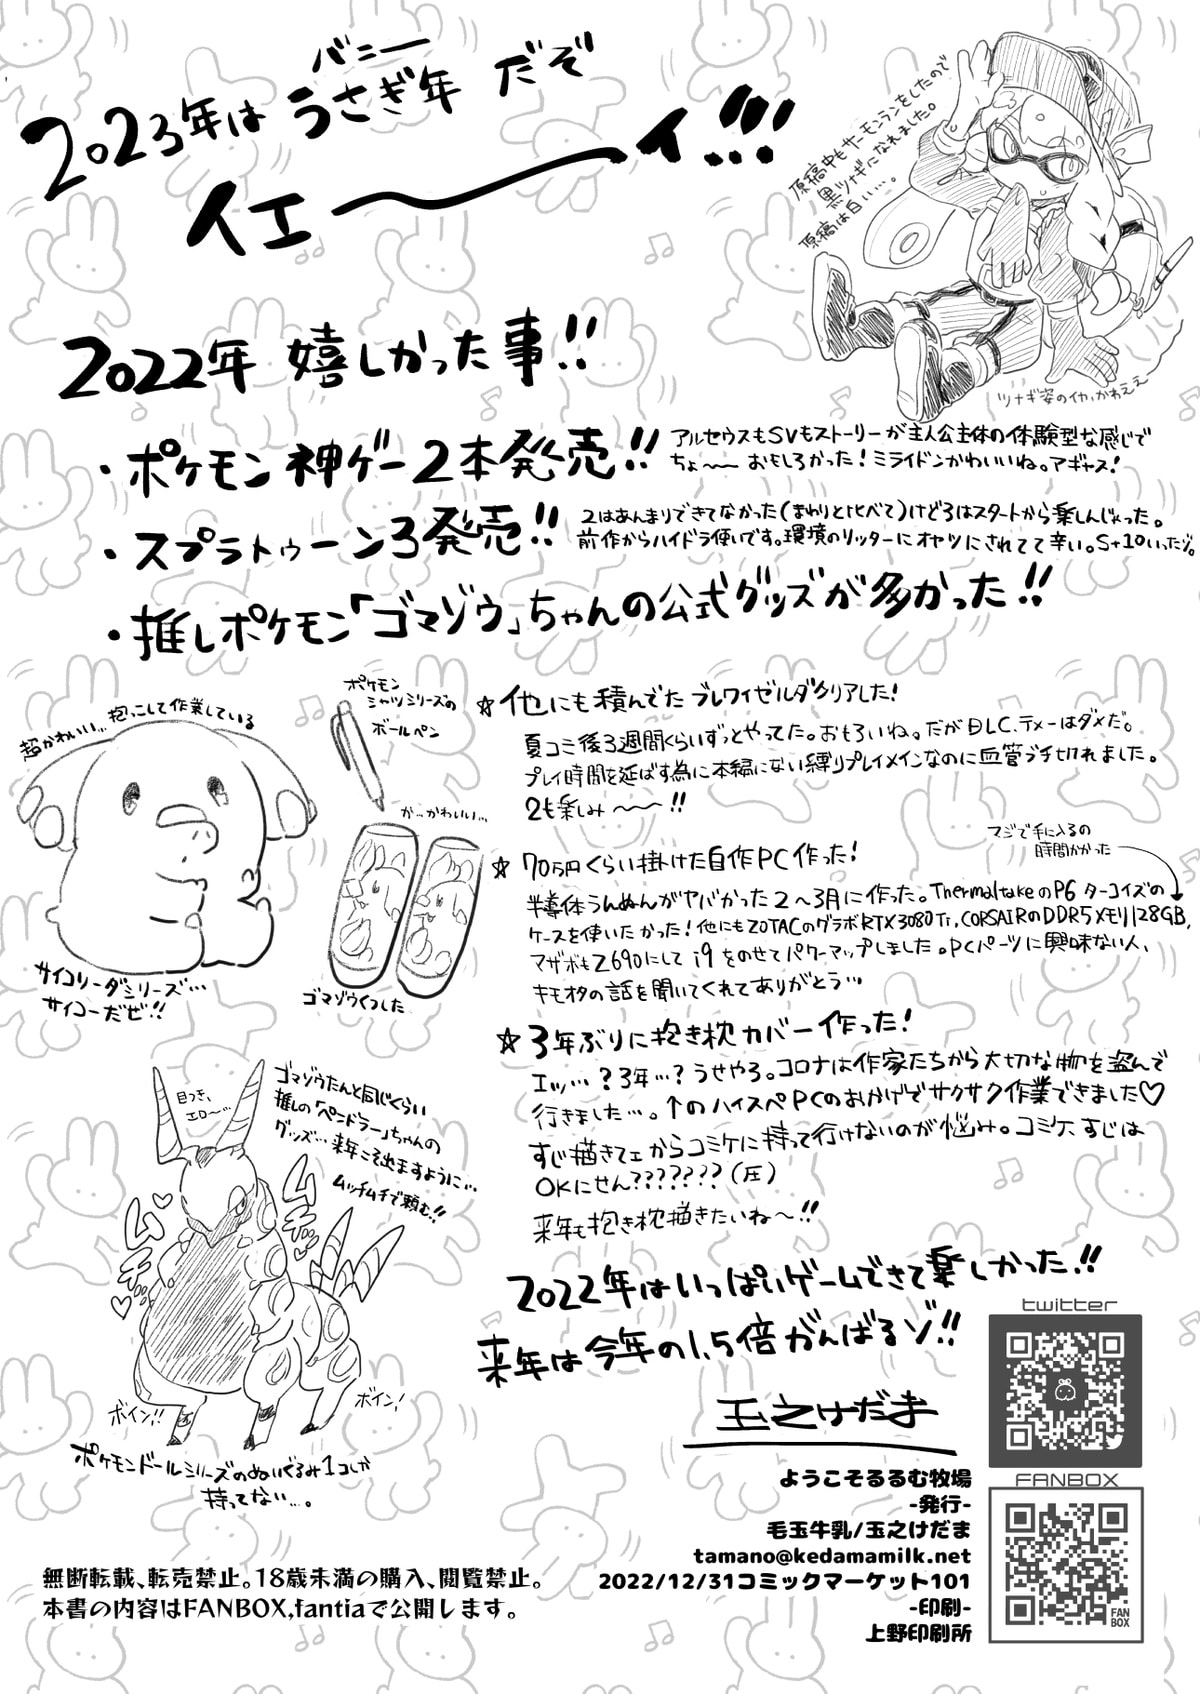 バニー
2023年は うさぎ年 だぞ
イエ〜〜イ!!!
原稿中もサーモンランをしたので
黒ツナギになれました。
原稿は白い…。
ツナギ姿のイカ、かわええ
2022年 嬉しかった事!!
・ポケモン 神ゲー2本発売!!
アルセウスもSVもストーリーが主人公主体の体験型な感じで
ちょ〜〜 おもしろかった!ミライドンかわいいね。アギャス!
・スプラトゥーン3発売!!
2はあんまりできてなかった(まわりと比べて)けど3はスタートから楽しんじゃった。
前作からハイドラ使いです。環境のリッターにオヤツにされてて辛い。S+10いったゾ。
・推しポケモン「ゴマゾウ」ちゃんの公式グッズが多かった!!
超かわいい…抱っこして作業している
サイコソーダシリーズ…
サイコーだぜ!!
ポケモン
シャツシリーズの
ボールペン
か…かわいい…
ゴマゾウくつした
☆他にも積んでた ブレワイゼルダクリアした!
夏コミ後3週間くらいずっとやってた。おもろいね。だがDLC、テメーはダメだ。
プレイ時間を延ばす為に本編にない縛りプレイメインなのに血管ブチ切れました。
2も楽しみ〜〜!!
☆70万円くらい掛けた自作PC作った!
マジで手に入るの
時間かかった
半導体うんぬんがヤバかった2〜3月に作った。ThermaltakeのP6 ターコイズの
ケースを使いたかった!他にもZOTACのグラボRTX3080Ti,CORSAIRのDDR5メモリ128GB,
マザボもZ690にして i9 をのせてパワーマップしました。PCパーツに興味ない人、
キモオタの話を聞いてくれてありがとう…
☆3年ぶりに抱き枕カバー作った!
エッ…?3年…?うせやろ。コロナは作家たちから大切な物を盗んで
行きました…。↑のハイスペPCのおかげでサクサク作業できました♡
すじ描きてェからコミケに持って行けないのが悩み。コミケ、すじは
OKにせん???????(圧)
来年も抱き枕描きたいね〜!!
目つき、
エロ〜…
ゴマゾウたんと同じくらい
推しの「ペンドラー」ちゃんの
グッズ…来年こそ出ますように…
ムッチムチで頼む!!
ムチッ♡
ムチッ…
ボイン!!
ボイン!
ポケモンドールシリーズのぬいぐるみ1コしか
持ってない…。
2022年はいっぱいゲームできて楽しかった!!
来年は今年の1.5倍がんばるゾ!!
玉之けだま
twitter
FANBOX
FAN
BOX
ようこそるるむ牧場
-発行-
毛玉牛乳/玉之けだま
tamano@kedamamilk.net
2022/12/31コミックマーケット101
-印刷-
上野印刷所
無断転載、転売禁止。18歳未満の購入、閲覧禁止。
本書の内容はFANBOX,fantiaで公開します。